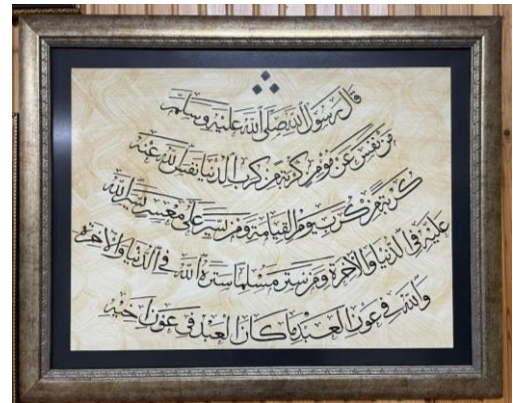 قال رسول الله صلى الله عليه وسلم
من نفس عن مؤمن كربة من كرب الدنيا نفس الله عنه
كربة من كرب يوم القيامة ومن يسر على معسر يسر الله
عليه في الدنيا والآخرة ومن ستر مسلما ستره الله في الدنيا والآخرة
والله في عون العبد ما كان العبد في عون اخيه